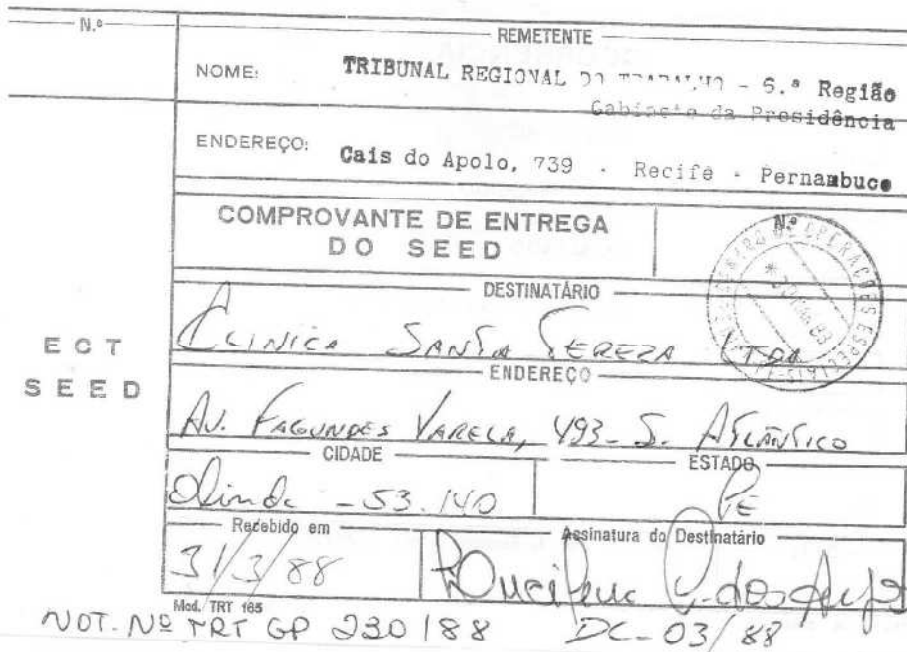 N.º
REMETENTE
NOME: TRIBUNAL REGIONAL DO TRABALHO - 6.ª Região
Gabinete da Presidência
ENDEREÇO: Cais do Apolo, 739 . Recife - Pernambuco
COMPROVANTE DE ENTREGA
DO SEED
N.º
DESTINATÁRIO
CLINICA SANTA TEREZA LTDA
ENDEREÇO
ECT
SEED
AV. FAGUNDES VARELA, 493 - J. ATLÂNTICO
CIDADE
ESTADO
Olinda - 53.140
PE
Recebido em
Assinatura do Destinatário
31/3/88
dos
Mod. TRT 165
NOT. Nº TRT GP 230/88 DC-03/88